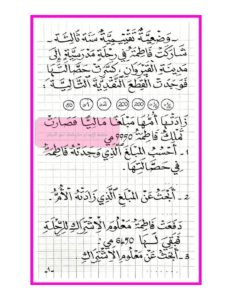 - وَضْعِيَّة تَقْيِيمِيَّة سَنَة ثَالِثَة -
شَارَكَتْ فَاطِمَةُ فِي رِحْلَةٍ مَدْرَسِيَّةٍ إِلَى
مَدِينَةِ القَيْرَوَانِ. كَسَّرَتْ حَصَّالَتَهَا
فَوَجَدَتْ القِطَعَ النَّقْدِيَّةَ التَّالِيَةَ :
زَادَتْهَا أُمُّهَا مَبْلَغًا مَالِيًّا فَصَارَتْ
تَمْلِكُ فَاطِمَةُ 9990 مي
1 - أَحْسُبُ المَبْلَغَ الَّذِي وَجَدَتْهُ فَاطِمَةُ
فِي حَصَّالَتِهَا.
2 - أَبْحَثُ عَنْ المَبْلَغِ الَّذِي زَادَتْهُ الأُمُّ.
دَفَعَتْ فَاطِمَةُ مَعْلُومَ الِاشْتِرَاكِ لِلرِّحْلَةِ
فَبَقِيَ لَهَا 6450 مي
3 - أَبْحَثُ عَنْ مَعْلُومِ الِاشْتِرَاكِ